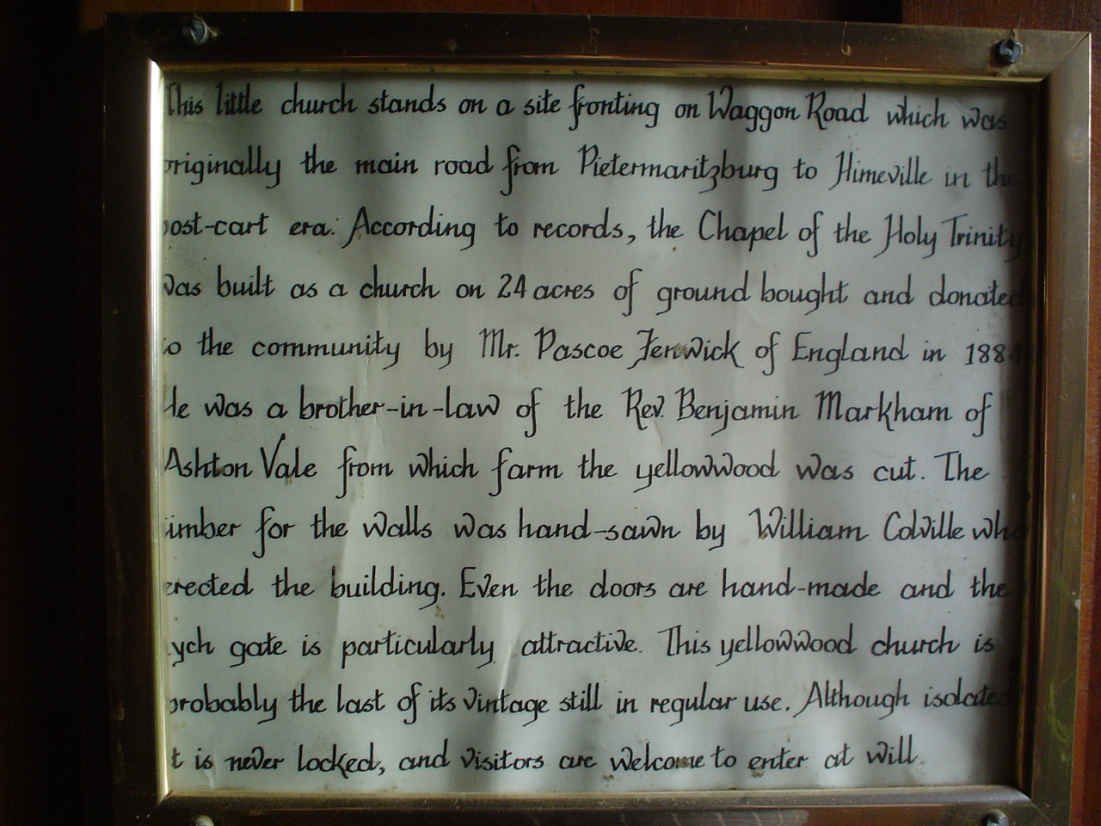 This little church stands on a site fronting on Waggon Road which was
originally the main road from Pietermaritzburg to Himeville in the
post-cart era. According to records, the Chapel of the Holy Trinity
was built as a church on 24 acres of ground bought and donated
to the community by Mr. Pascoe Fenwick of England in
He was a brother-in-law of the Rev. Benjamin Markham of
Ashton Vale from which farm the yellowwood was cut. The
timber for the walls was hand-sawn by William Colville who
erected the building. Even the doors are hand-made and the
lych gate is particularly attractive. This yellowwood church is
probably the last of its vintage still in regular use. Although isolated
it is never locked, and visitors are welcome to enter at will.